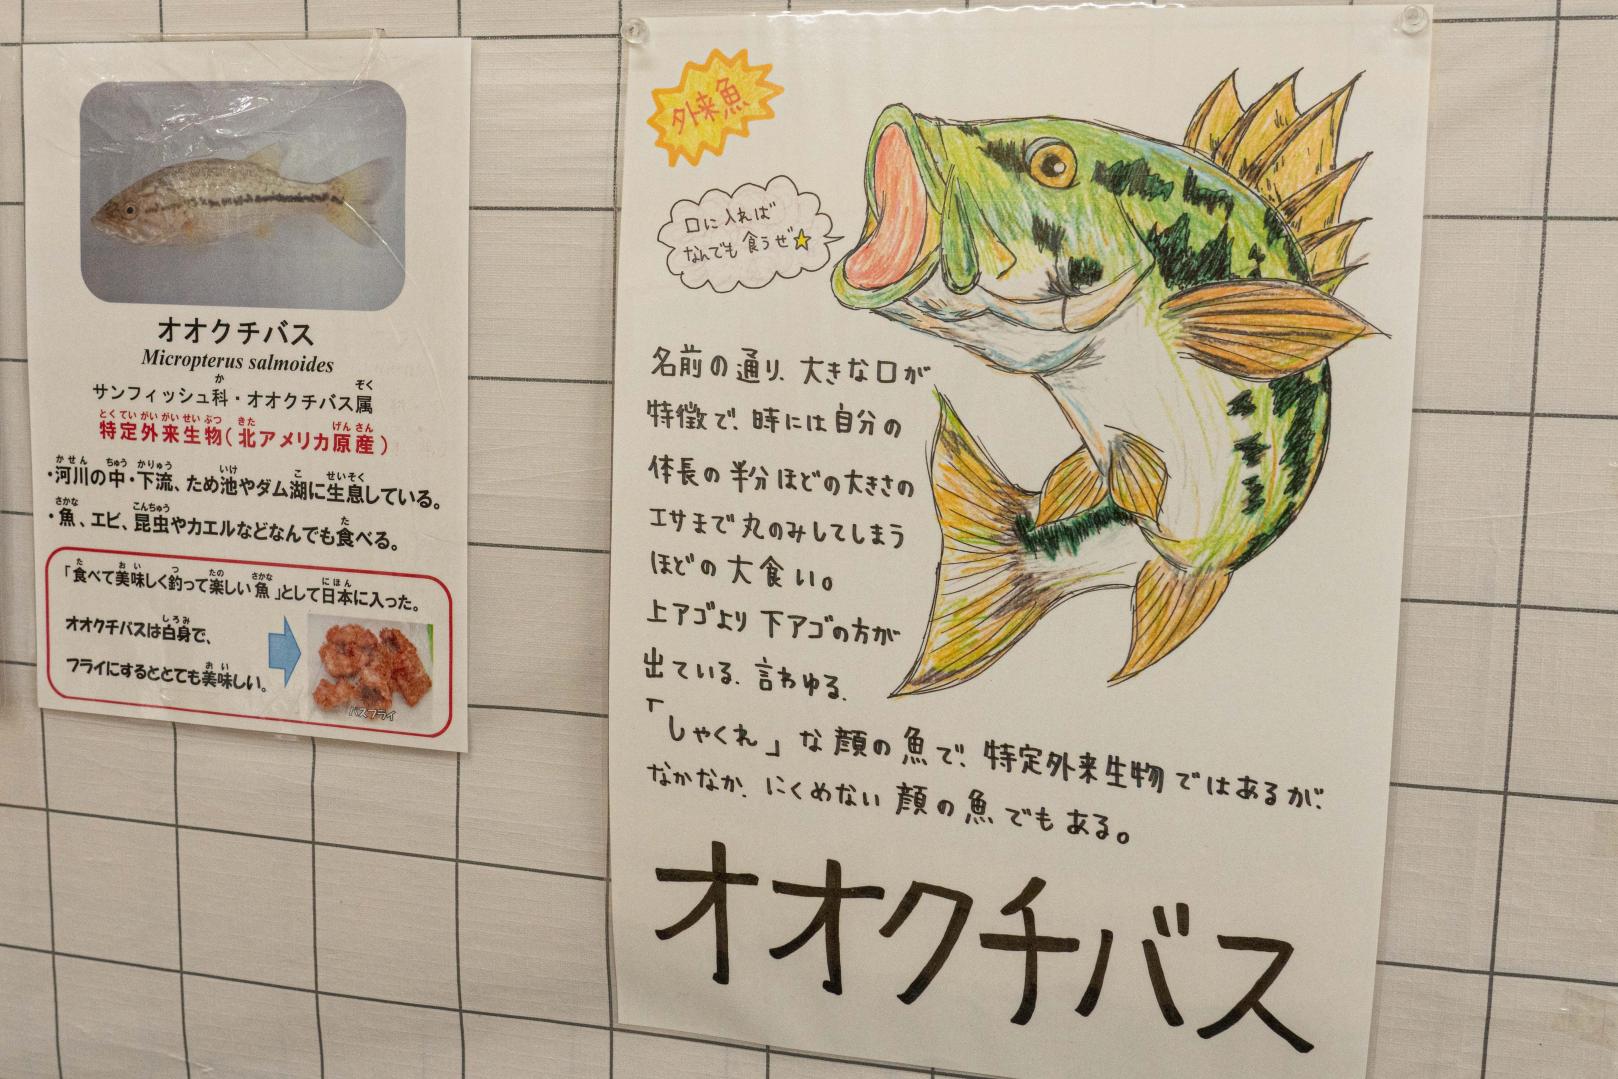 オオクチバス
Micropterus salmoides
か ぞく
サンフィッシュ科・オオクチバス属
とくていがいがいせいぶつ きた げんさん
特定外来生物(北アメリカ原産)
かせん ちゅう かりゅう いけ こ せいそく
・河川の中・下流、ため池やダム湖に生息している。
さかな こんちゅう た
・魚、エビ、昆虫やカエルなどなんでも食べる。
た おい つ たの さかな にほん
「食べて美味しく釣って楽しい魚」として日本に入った。
しろみ
オオクチバスは白身で、
おい
フライにするととても美味しい。
バスフライ
外来魚
口に入れば
なんでも食うぜ☆
名前の通り、大きな口が
特徴で、時には自分の
体長の半分ほどの大きさの
エサまで丸のみしてしまう
ほどの大食い。
上アゴより下アゴの方が
出ている、言わゆる、
「しゃくれ」な顔の魚で、特定外来生物ではあるが、
なかなか、にくめない顔の魚でもある。
オオクチバス